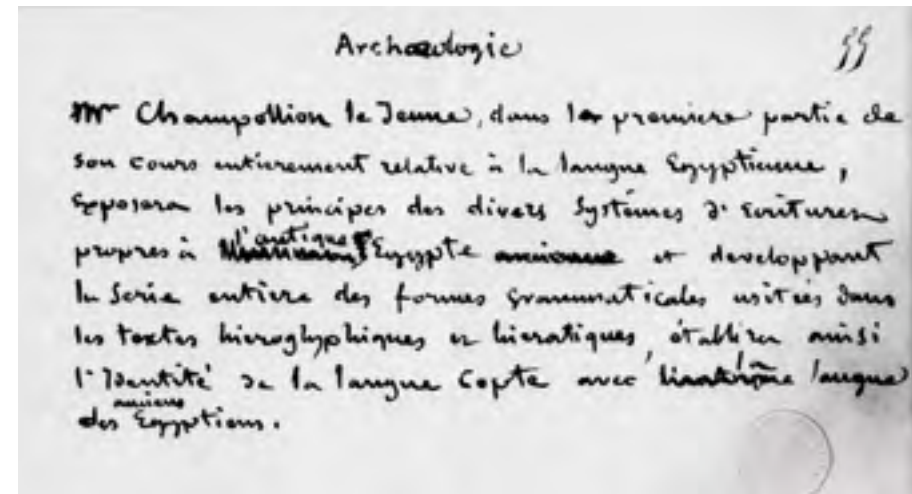 Archæologie 55
Mr Champollion le Jeune, dans la premiere partie de
son cours entierement relative à la langue Egyptienne,
Exposera les principes des divers Systèmes d'Ecritures
propres à l'antique Egypte ancienne et developpant
la Serie entiere des formes grammaticales usitées dans
les textes hieroglyphiques et hieratiques, établira ainsi
l'Identité de la langue Copte avec la langue
des anciens Egyptiens.